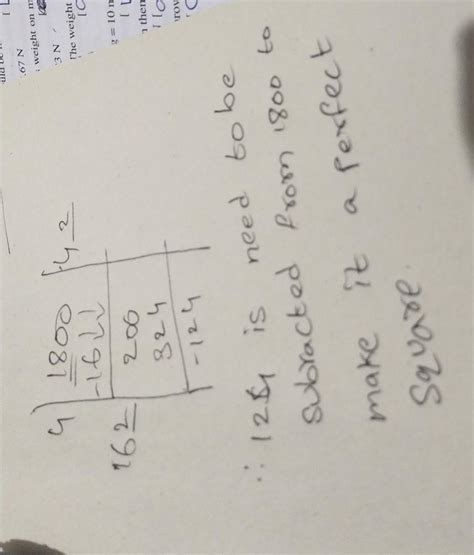 weight on m
.67 N
3 N
The weight
= 10 m
then
4 1800 42
-16
162 200
324
-124
∴ 124 is need to be
subtracted from 1800 to
make it a perfect
square.